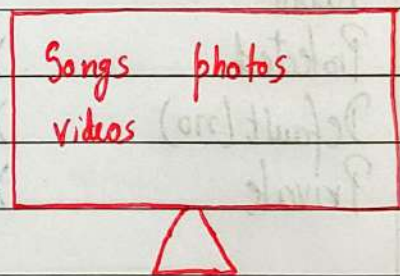 Songs photos
videos